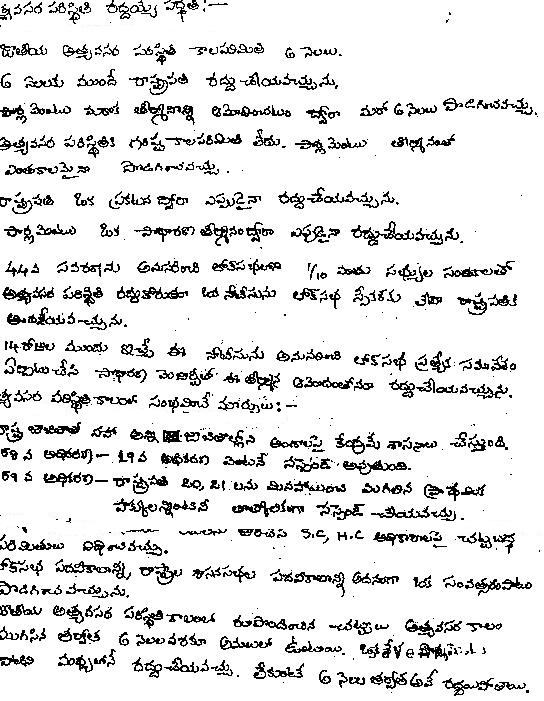 అత్యవసర పరిస్థితి రద్దయ్యే స్థితి :-
జాతీయ అత్యవసర పరిస్థితి కాలపరిమితి 6 నెలలు.
6 నెలలకు ముందే రాష్ట్రపతి రద్దు చేయవచ్చును.
పార్లమెంటు మరొక తీర్మానాన్ని ఆమోదించటం ద్వారా మరో 6 నెలలు పొడిగించవచ్చు.
అత్యవసర పరిస్థితికి గరిష్ట కాలపరిమితి లేదు. పార్లమెంటు తీర్మానంతో
ఎంతకాలమైనా పొడిగించవచ్చు.
రాష్ట్రపతి ఒక ప్రకటన ద్వారా ఎప్పుడైనా రద్దు చేయవచ్చును.
పార్లమెంటు ఒక సాధారణ తీర్మానం ద్వారా ఎప్పుడైనా రద్దు చేయవచ్చును.
44వ సవరణను అనుసరించి లోక్‌సభలోని 1/10 వంతు సభ్యుల సంతకాలతో
అత్యవసర పరిస్థితి రద్దుకోరుతూ ఒక నోటీసును లోక్‌సభ స్పీకరుకు లేదా రాష్ట్రపతికి
అందజేయవచ్చును.
14 రోజుల ముందు ఇచ్చే ఈ నోటీసును అనుసరించి లోక్‌సభ ప్రత్యేక సమావేశం
ఏర్పాటుచేసి సాధారణ మెజారిటీతో ఈ తీర్మాన ఆమోదంతోనూ రద్దు చేయవచ్చును.
అత్యవసర పరిస్థితి కాలంలో సంభవించే మార్పులు :-
రాష్ట్ర జాబితాతో సహా అన్ని జాబితాల్లోని అంశాలపై కేంద్రమే శాసనాలు చేస్తుంది.
358వ అధికరణ - 19వ అధికరణ వెంటనే సస్పెండ్ అవుతుంది.
359వ అధికరణ - రాష్ట్రపతి 20, 21 లను మినహాయించి మిగిలిన ప్రాథమిక
హక్కులన్నింటినీ తాత్కాలికంగా సస్పెండ్ చేయవచ్చు.
S.C, H.C అధికారాలపై చట్టబద్ధ
పరిమితులు విధించవచ్చు.
లోక్‌సభ పదవీకాలాన్ని, రాష్ట్రాల శాసనసభల పదవీకాలాన్ని అదనంగా ఒక సంవత్సరంపాటు
పొడిగించవచ్చును.
జాతీయ అత్యవసర పరిస్థితి కాలంలో రూపొందించిన చట్టాలు అత్యవసర కాలం
ముగిసిన తర్వాత 6 నెలల వరకూ అమలులో ఉంటాయి. ఒకవేళ పార్లమెంటు
వాటిని మధ్యలోనే రద్దు చేయవచ్చు. లేకుంటే 6 నెలల తర్వాత అవే రద్దయిపోతాయి.